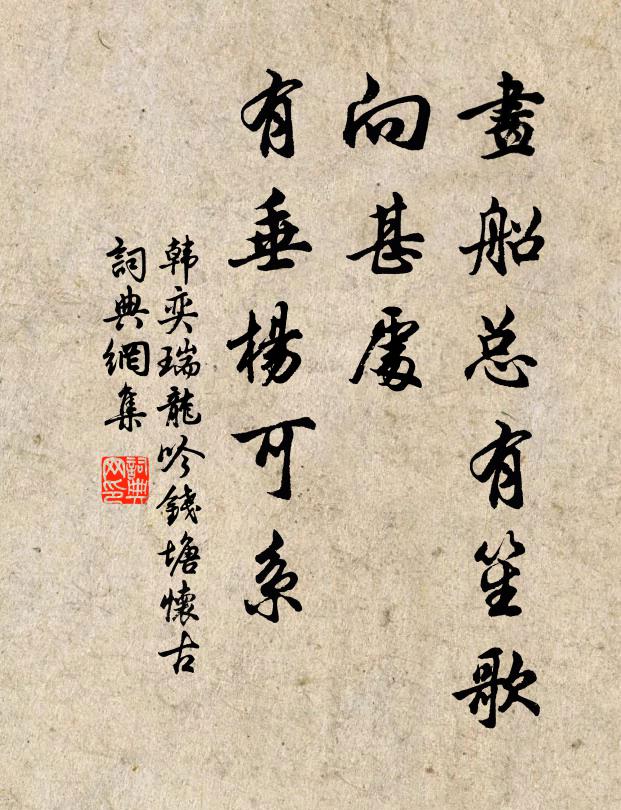 畫船总有笙歌
向甚處
有垂楊可系
韩奕瑞龍吟錢塘懷古
詞典網集
詞典
网印